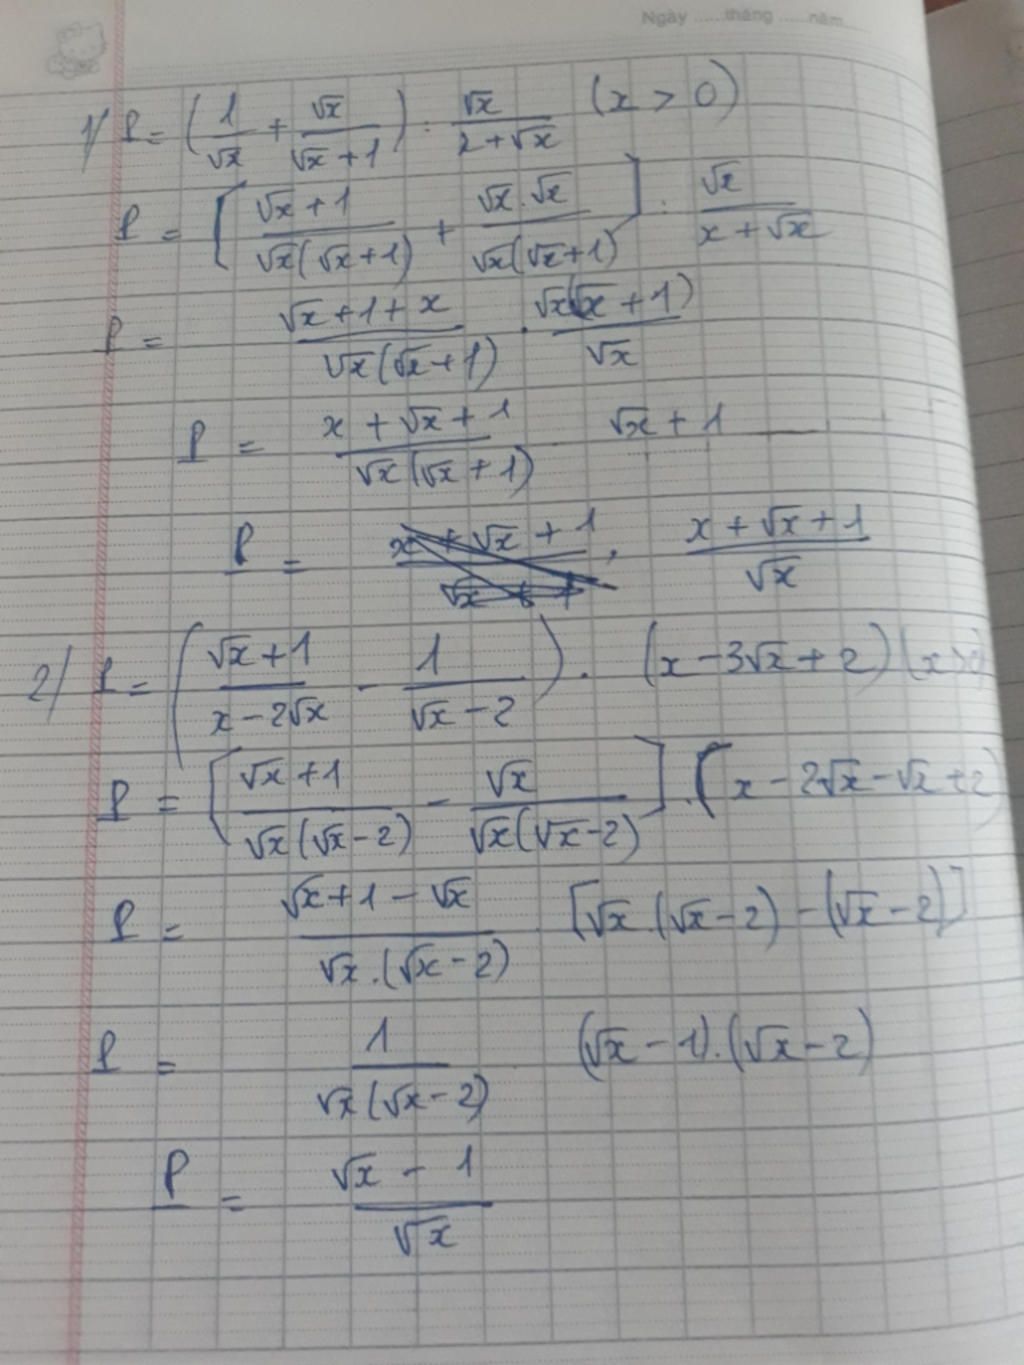 Ngày ......tháng ......năm......
1/ P = (1/√x + √x/(√x + 1)) : √x/(2 + √x) (x > 0)
P = [(√x + 1)/(√x(√x + 1)) + (√x . √x)/(√x(√x + 1))] : √x/(x + √x)
P = (√x + 1 + x)/(√x(√x + 1)) . √x(√x + 1)/√x
P = (x + √x + 1)/(√x(√x + 1)) √x + 1
P = (x + √x + 1)/√x
2/ P = ((√x + 1)/(x - 2√x) - 1/(√x - 2)) . (x - 3√x + 2) (x >
P = [(√x + 1)/(√x(√x - 2)) - √x/(√x(√x - 2))] . (x - 2√x - √x + 2)
P = (√x + 1 - √x)/(√x . (√x - 2)) . [√x . (√x - 2) - (√x - 2)]
P = 1/(√x(√x - 2)) (√x - 1) . (√x - 2)
P = (√x - 1)/√x